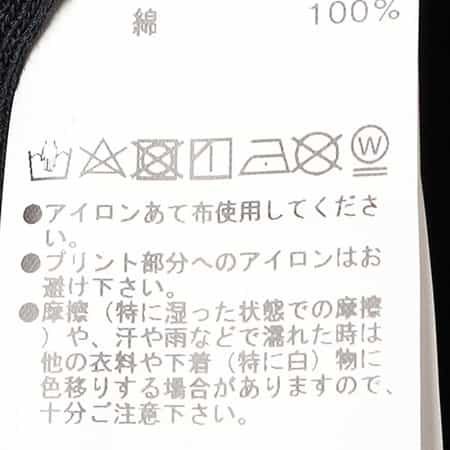 綿 100%
W
●アイロンあて布使用してくださ
い。
●プリント部分へのアイロンはお
避け下さい。
●摩擦（特に湿った状態での摩擦
）や、汗や雨などで濡れた時は
他の衣料や下着（特に白）物に
色移りする場合がありますので、
十分ご注意下さい。